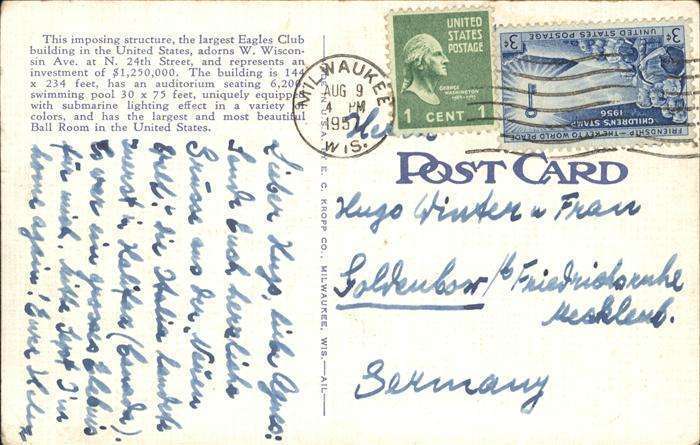 This imposing structure, the largest Eagles Club
building in the United States, adorns W. Wiscon-
sin Ave. at N. 24th Street, and represents an
investment of $1,250,000. The building is 144
x 234 feet, has an auditorium seating 6,200
swimming pool 30 x 75 feet, uniquely equipped
with submarine lighting effect in a variety
colors, and has the largest and most beautiful
Ball Room in the United States.
MILWAUKEE
AUG 9
4 PM
195
WIS.
UNITED
STATES
POSTAGE
GEORGE
WASHINGTON
1 CENT 1
3¢ UNITED STATES POSTAGE 3¢
FRIENDSHIP—THE KEY TO WORLD PEACE
CHILDREN'S STAMP
1956
POST CARD
E. C. KROPP CO., MILWAUKEE, WIS.
Hugo Winter u Frau
Goldenbow / b Friedrichsruhe
Mecklenb.
Germany
Lieber Hugo, liebe Agnes:
Sende Euch herzliche
Grüsse aus der Neuen
Welt! die Italia landete
zuerst in Halifax (Canada).
Es war ein grosses Erlebnis
für mich. Mitte Sept I'm
home again! Eure Helen